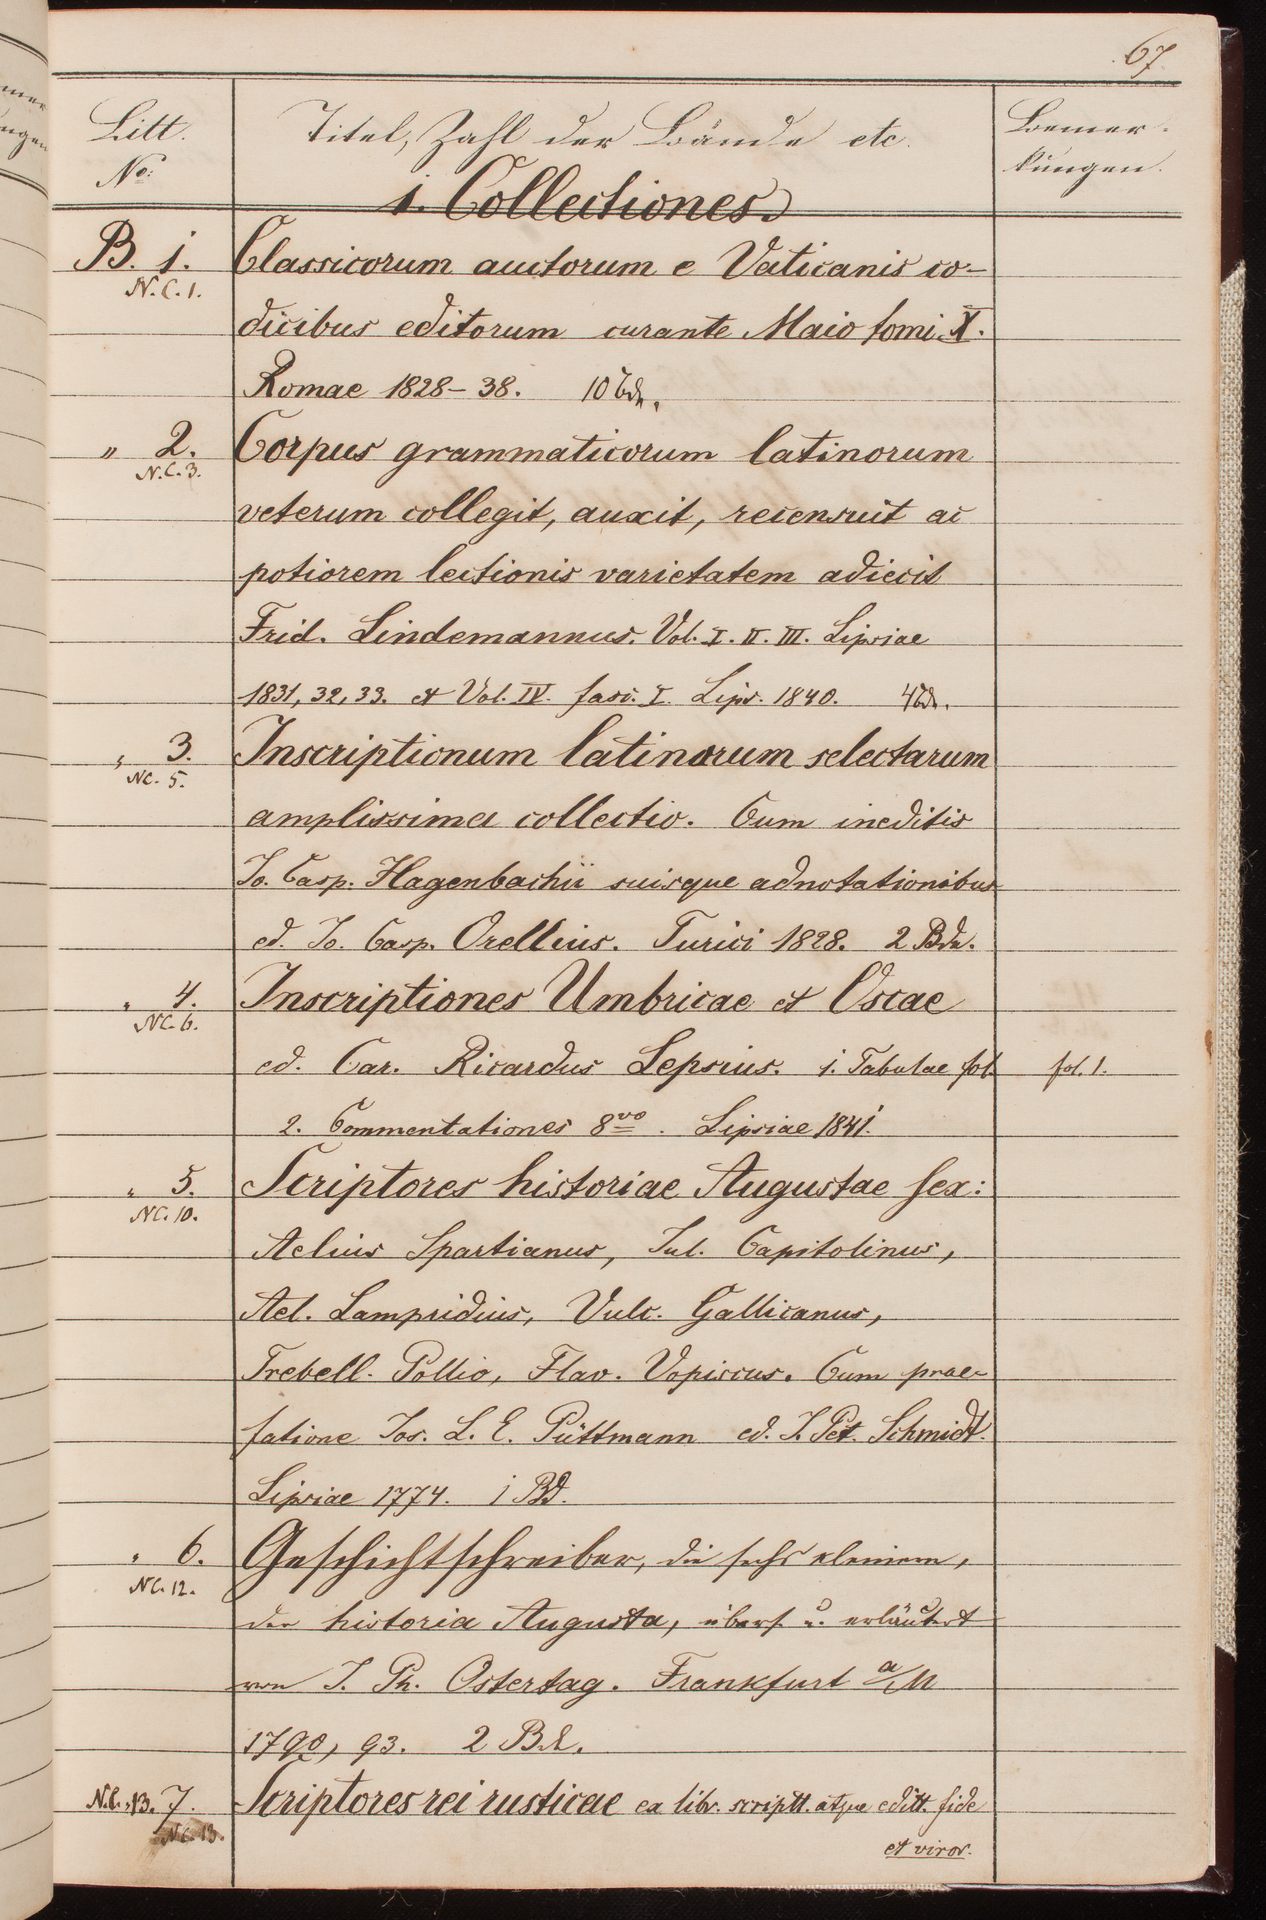 67
Litt. Titel, Zahl der Bände etc. Bemer-
No: kungen.
1. Collectiones.
B. 1. Classicorum auctorum e Vaticanis co-
N.C.1.
dicibus editorum curante Maio tomi X.
Romae 1828-38. 10 Bde.
" 2. Corpus grammaticorum latinorum
N.C.3.
veterum collegit, auxit, recensuit ac
potiorem lectionis varietatem adiecit
Frid. Lindemannus. Vol. I. II. III. Lipsiae
1831, 32, 33. et Vol. IV. fasc. I. Lips. 1840. 4 Bde.
" 3. Inscriptionum latinarum selectarum
NC. 5.
amplissima collectio. Cum ineditis
Io. Casp. Hagenbachii suisque adnotationibus
ed. Io. Casp. Orellius. Turici 1828. 2 Bde.
" 4. Inscriptiones Umbricae et Oscae
NC. 6.
ed. Car. Ricardus Lepsius. 1. Tabulae fol. fol. 1.
2. Commentationes 8vo. Lipsiae 1841.
" 5. Scriptores historiae Augustae sex:
NC. 10.
Aelius Spartianus, Iul. Capitolinus,
Ael. Lampridius, Vulc. Gallicanus,
Trebell. Pollio, Flav. Vopiscus. Cum prae-
fatione Ios. L. E. Püttmann ed. I. Pet. Schmidt.
Lipsiae 1774. 1 Bd.
" 6. Geschichtschreiber, die sechs kleinern,
NC. 12.
der historia Augusta, übers. u. erläutert
von J. Ph. Ostertag. Frankfurt a/M
1790, 93. 2 Bde.
N.C. 13. 7. Scriptores rei rusticae ex libr. scriptt. atque editt. fide
NC. 13.
et viror.